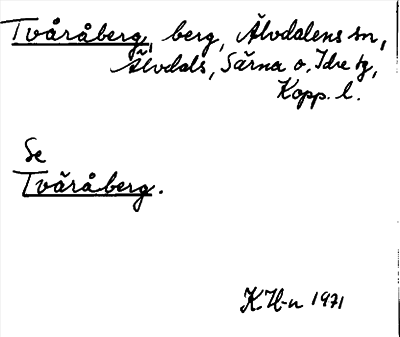 Tvåråberg, berg, Älvdalens sn,
Älvdals, Särna o. Idre tg,
Kopp. l.
Se
Tväråberg.
K.H-n 1971